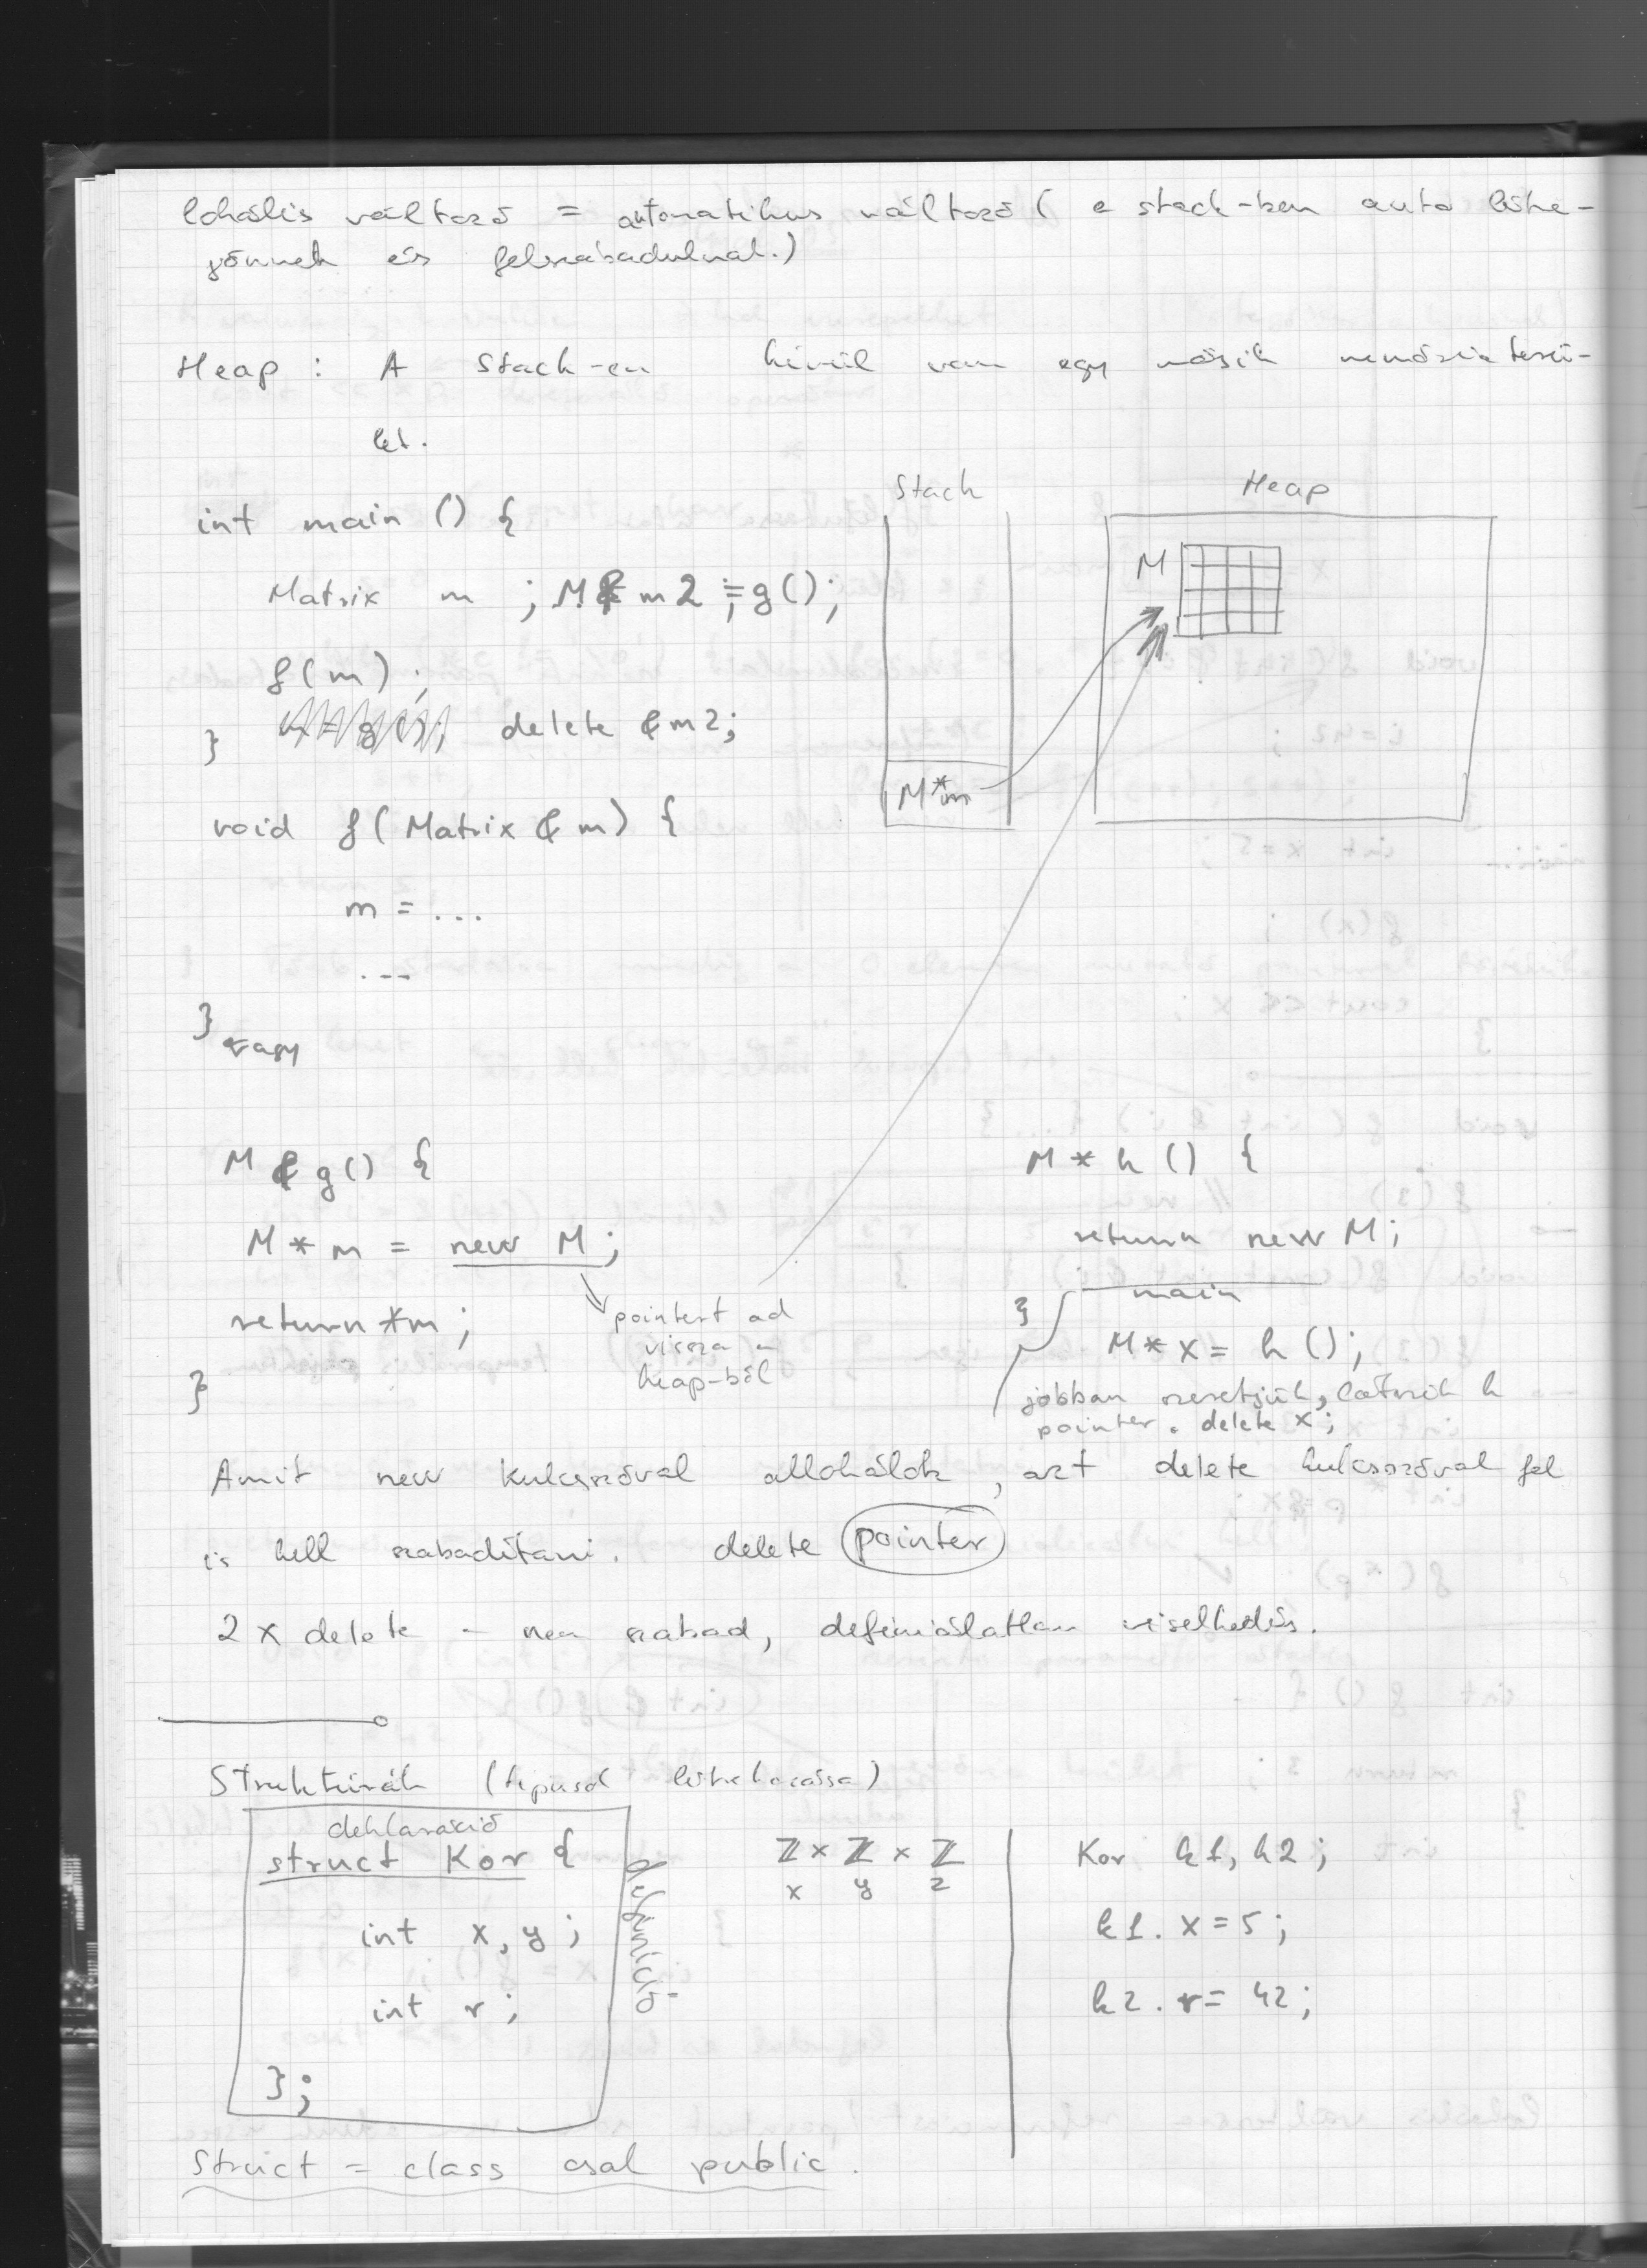 lokális változó = automatikus változó ( a stack-ben auto létre-
jönnek és felszabadulnak.)
Heap : A stack-en kívül van egy másik memóriaterü-
let.
Stack Heap
int main () {
Matrix m ; M& m2 = g();
M
f(m) ;
} delete &m2;
M*m
void f( Matrix & m) {
m = ...
...
}
vagy
M & g() {
M * m = new M ;
pointert ad
vissza a
heap-ből
return *m ;
}
M * h () {
return new M ;
}
main
M * x = h ();
jobban szeretjük, látszik h
pointer. delete x;
Amit new kulcsszóval allokálok, azt delete kulcsszóval fel
is kell szabadítani. delete pointer
2 x delete - nem szabad, definiálatlan viselkedés.
Struktúrák (típusok létrehozása)
deklaráció
struct Kor {
int x, y ;
int r ;
} ;
definíció
ℤ × ℤ × ℤ
x y z
Kor k1, k2 ;
k1. x = 5 ;
k2. r = 42 ;
Struct = class csak public.